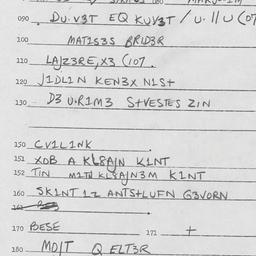 090 DU.V3T EQ KUV3T / U.11U (07
100 MAT1S3S BRLD3R
110 LAJZ3RE,X3 (107.
120 J1DL1N KEN3X N1S+
130 D3 U.R1M3 S+VES+ES Z1N
150 CV1L1NK
151 XOB A KL8AJN K1NT
152 T1N M1TU KL8AJN3M K1NT
160 SK1NT 1Z ANTS+LUFN G3VORN
161
170 BESE 171 +
180 MOJT Q ELT3R